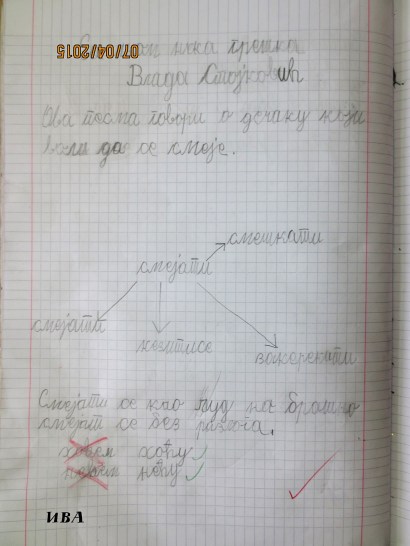 07/04/2015
нека грешка
Влада Стојковић
Ова песма говори о дечаку који
воли да се смеје.
смешкати
смејати
смејати
кезитисе
закорекати
Смејати се као луд на брашно
смејат се без разлога.
хоћем хоћу
нећем нећу
ИВА